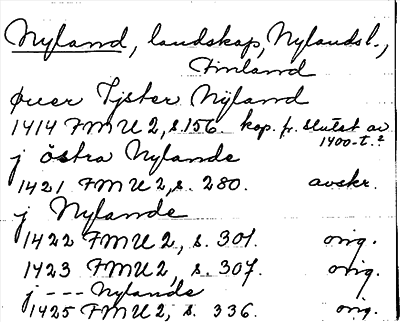 Nyland, landskap, Nylandsl.,
Finland
øuer Tjster Nyland
1414 FMU 2, s. 156. kop. fr. slutet av
1400-t.?
j östra Nylande
1421 FMU 2, s. 280. avskr.
j Nylande
1422 FMU 2, s. 301. orig.
1423 FMU 2, s. 307. orig.
j --- Nylande
1425 FMU 2, s. 336. orig.